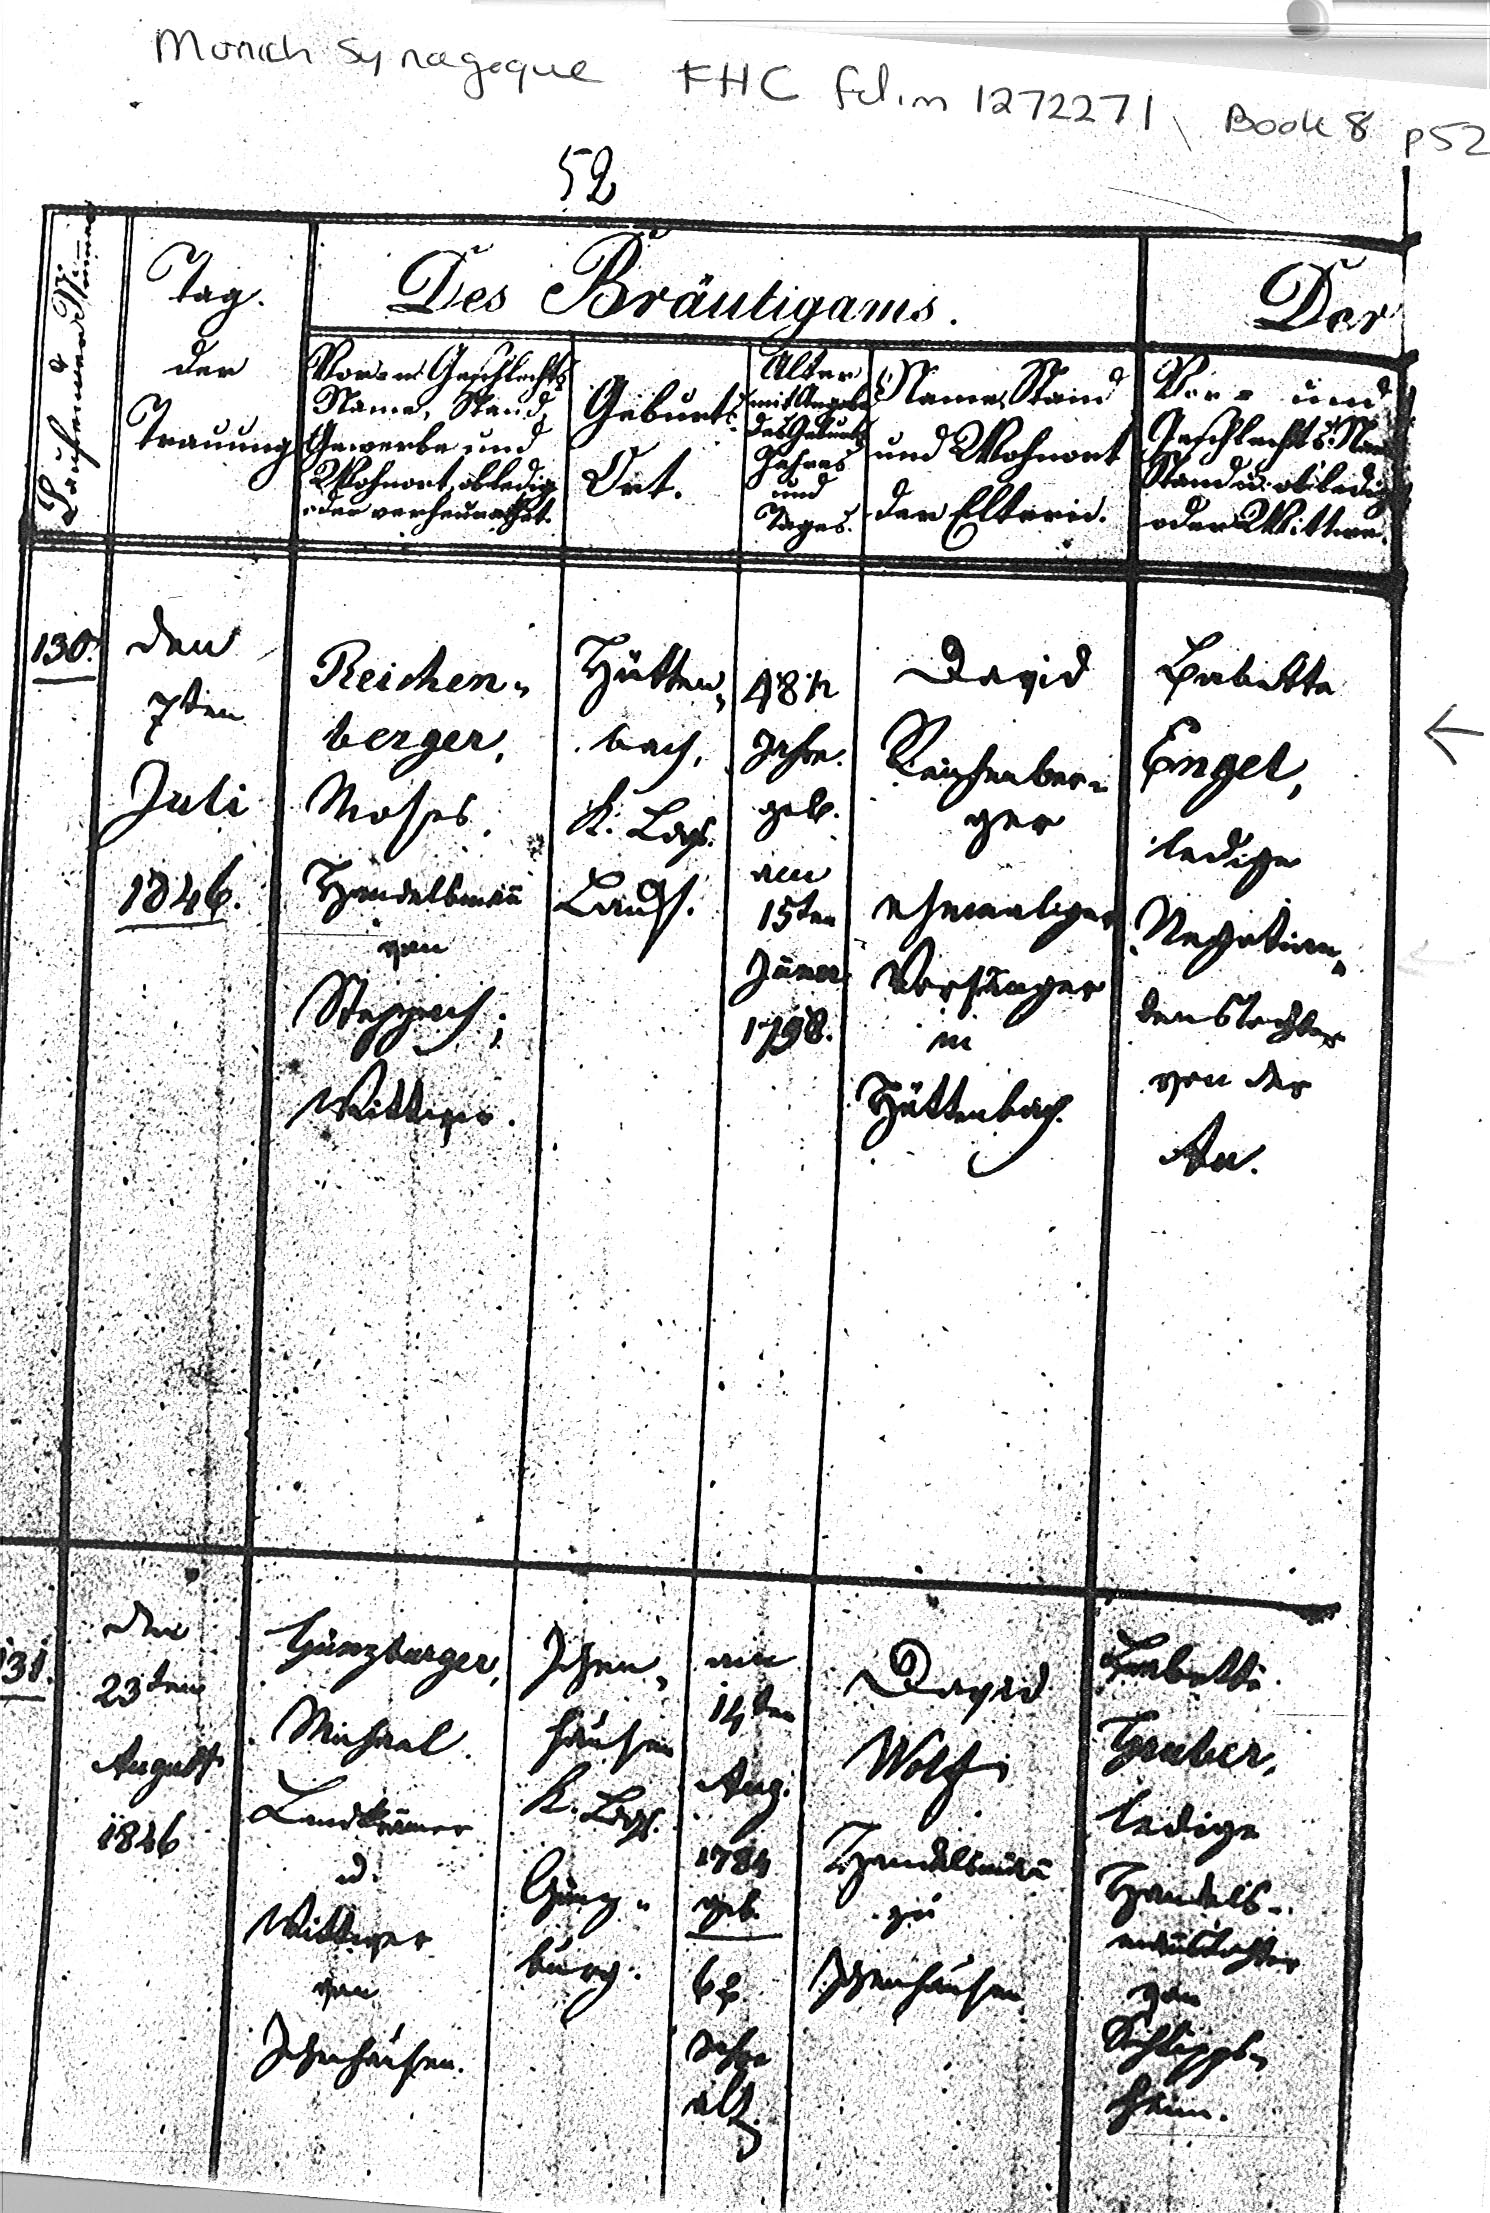 Munich Synagogue FHC film 1272271 Book 8 p52
52
Laufende Nummer
Tag.
der
Trauung
Des Bräutigams.
Der
Vor- u. Geschlechts
Name, Stand,
Gewerbe und
Wohnort, ob ledig
oder verheurathet.
Geburts
Ort.
Alter
mit Angabe
des Geburts
Jahres
und
Tages.
Name, Stand
und Wohnort
der Eltern.
Vor- und
Geschlechts-Name
Stand u. ob ledig
oder Wittwe.
130.
den
7ten
Juli
1846.
Reichen-
berger,
Moses,
Handelsmañ
von
Steppach;
Wittwer.
Hütten-
bach,
K. Ldg.
Lauf.
48
Jahre.
geb.
am
15ten
Jäner
1798.
David
Reichenber-
ger
ehemaliger
Vorsänger
in
Hüttenbach.
Babette
Engel,
ledige
Negotian-
tenstochter
von der
Au.
131.
den
23ten
August
1846
Günzburger,
Michael.
Landkrämer
u.
Wittwer
von
Ichenhausen.
Ichen-
hausen
K. Ldg.
Günz-
burg.
am
14ten
Aug.
1784
geb.
62
Jahre
alt.
David
Wolf
Handelsmañ
zu
Ichenhausen
Babette
Gruber,
ledige
Handels-
mañstochter
von
Schlipps-
heim.